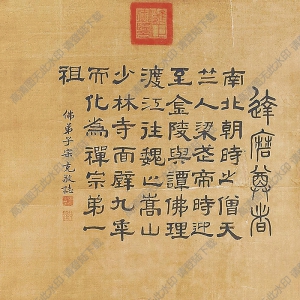 達磨尊者
南北朝時之僧天
竺人梁武帝時迎
至金陵與譚佛理
渡江往魏之嵩山
少林寺面壁九年
而化為禪宗第一
祖
佛弟子宗亮敬誌